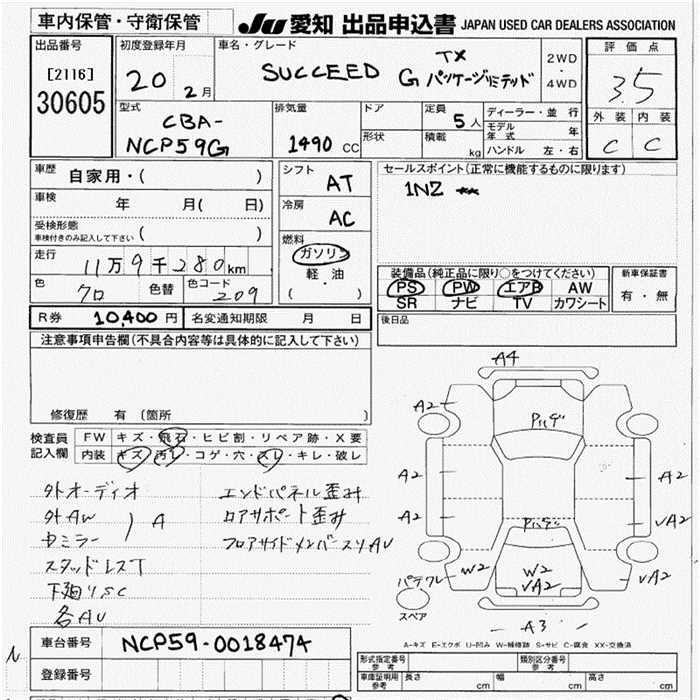 車内保管・守衛保管
JU 愛知 出品申込書 JAPAN USED CAR DEALERS ASSOCIATION
出品番号
[2116]
30605
初度登録年月
20 2月
車名・グレード
SUCCEED
TX
G パッケージリミテッド
2WD
・
4WD
評価点
3.5
外装 内装
C C
型式
CBA-
NCP59G
排気量
1490 CC
ドア
形状
定員
5人
積載
kg
ディーラー・並行
モデル年式 年
ハンドル 左・右
車歴
自家用・( )
車検 年 月( 日)
受検形態
車検付きのみ記入して下さい ( )
走行
11万9千280km
色 クロ 色替 色コード 209
シフト
AT
冷房
AC
燃料
ガソリン
軽・油
( )
セールスポイント(正常に機能するものに限ります)
1NZ
装備品(純正品に限り○をつけてください)
PS PW エアB AW
SR ナビ TV カワシート
新車保証書
有・無
R券 10,400円 名変通知期限 月 日
後日品
注意事項申告欄(不具合内容等は具体的に記入して下さい)
修復歴 有(箇所 )
検査員
記入欄
FW キズ・飛石・ヒビ割・リペア跡・X要
内装 キズ・汚レ・コゲ・穴・スレ・キレ・破レ
外オーディオ
外AW
ドミラー ) A
スタッドレスT
下廻りSC
各AU
エンドパネル歪み
ロアサポート歪み
フロアサイドメンバースリAU
A4
A2
パハゲ
A2
A2
A2
A2
パハゲ
VA2
W2
W2
VA2
VA2
パテクレ
スペア
A3
A-キズ E-エクボ U-凹み W-補修跡 S-サビ C-腐食 XX-交換済
車台番号 NCP59-0018474
登録番号
形式指定番号
参考
類別区分番号
参考
車庫証明用
参考
長さ cm 幅 cm 高さ cm